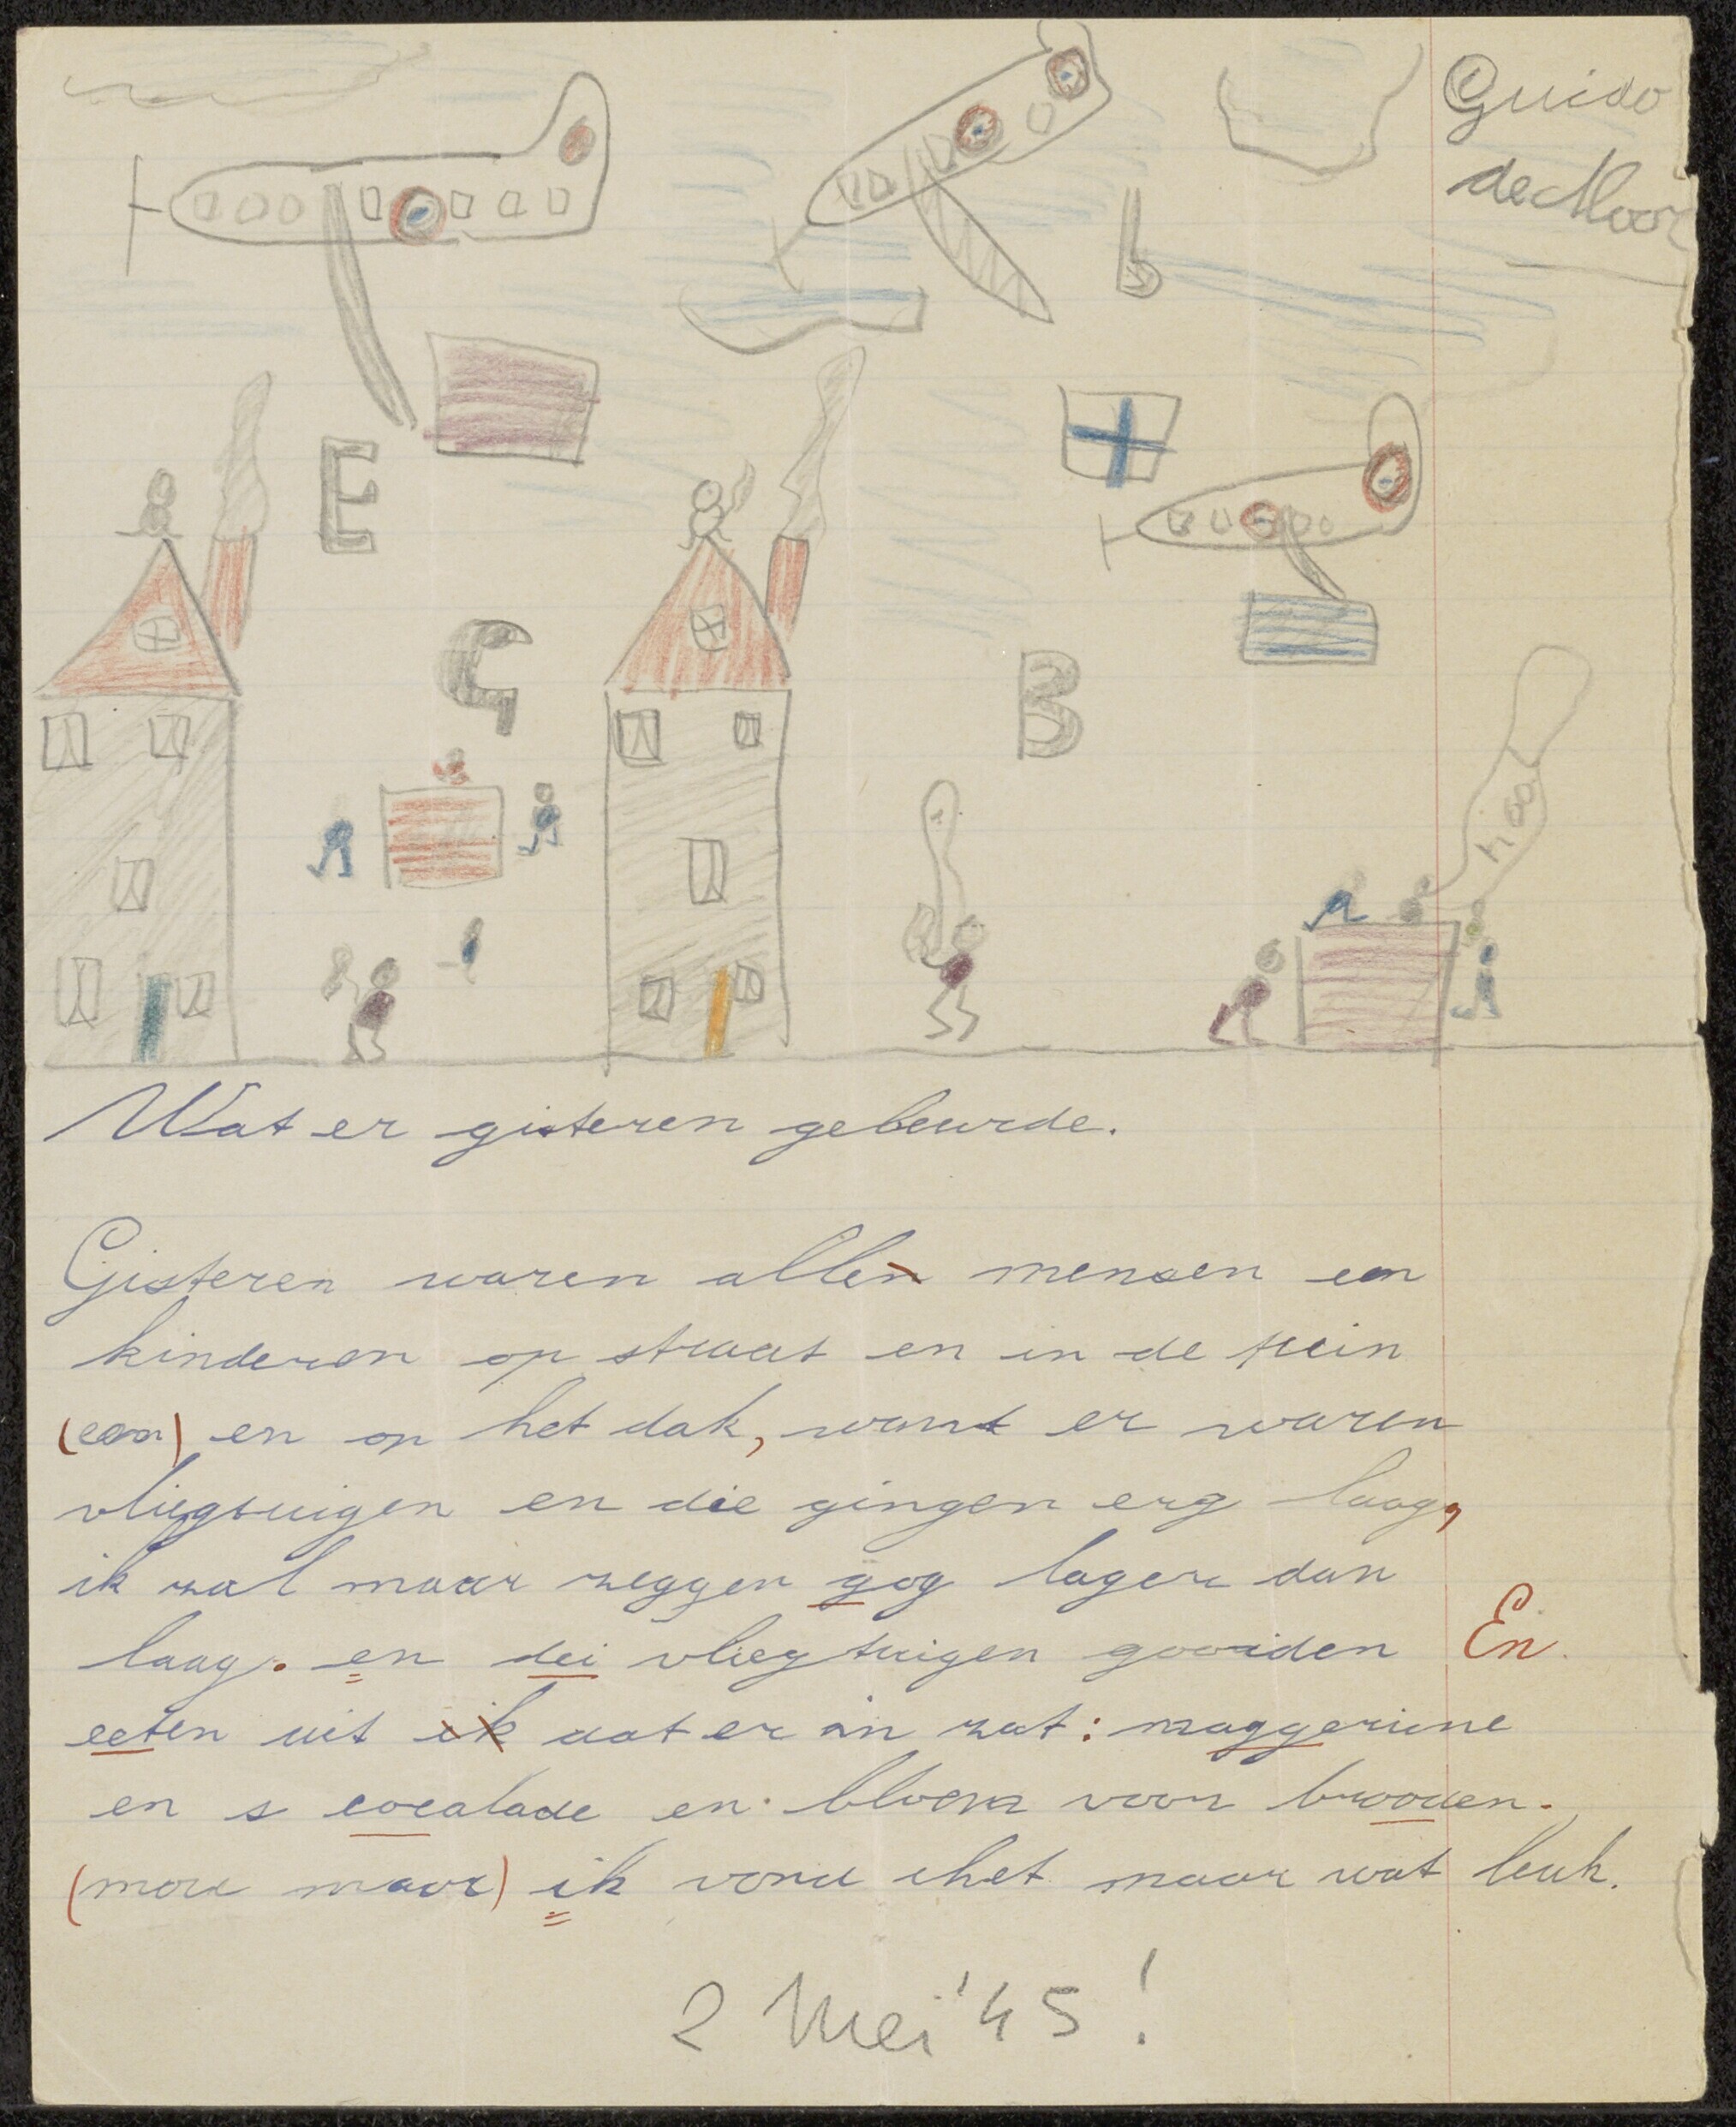 Guido
de Moor
b
E
G
B
hoo
Wat er gisteren gebeurde.
Gisteren waren allen mensen een
kinderen op straat en in de tuin
(een) en op het dak, want er waren
vliegtuigen en die gingen erg laag,
ik zal maar zeggen gog lager dan
laag. en dei vliegtuigen gooiden En
eeten uit ik dat er in zat: maggerine
en s cocalade en bloem voor brooden.
(mou maar) ik vond het maar wat leuk.
2 Mei '45!